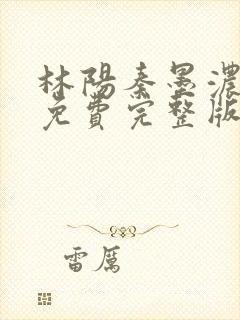 林陽秦墨濃
免費完整版
雷厲